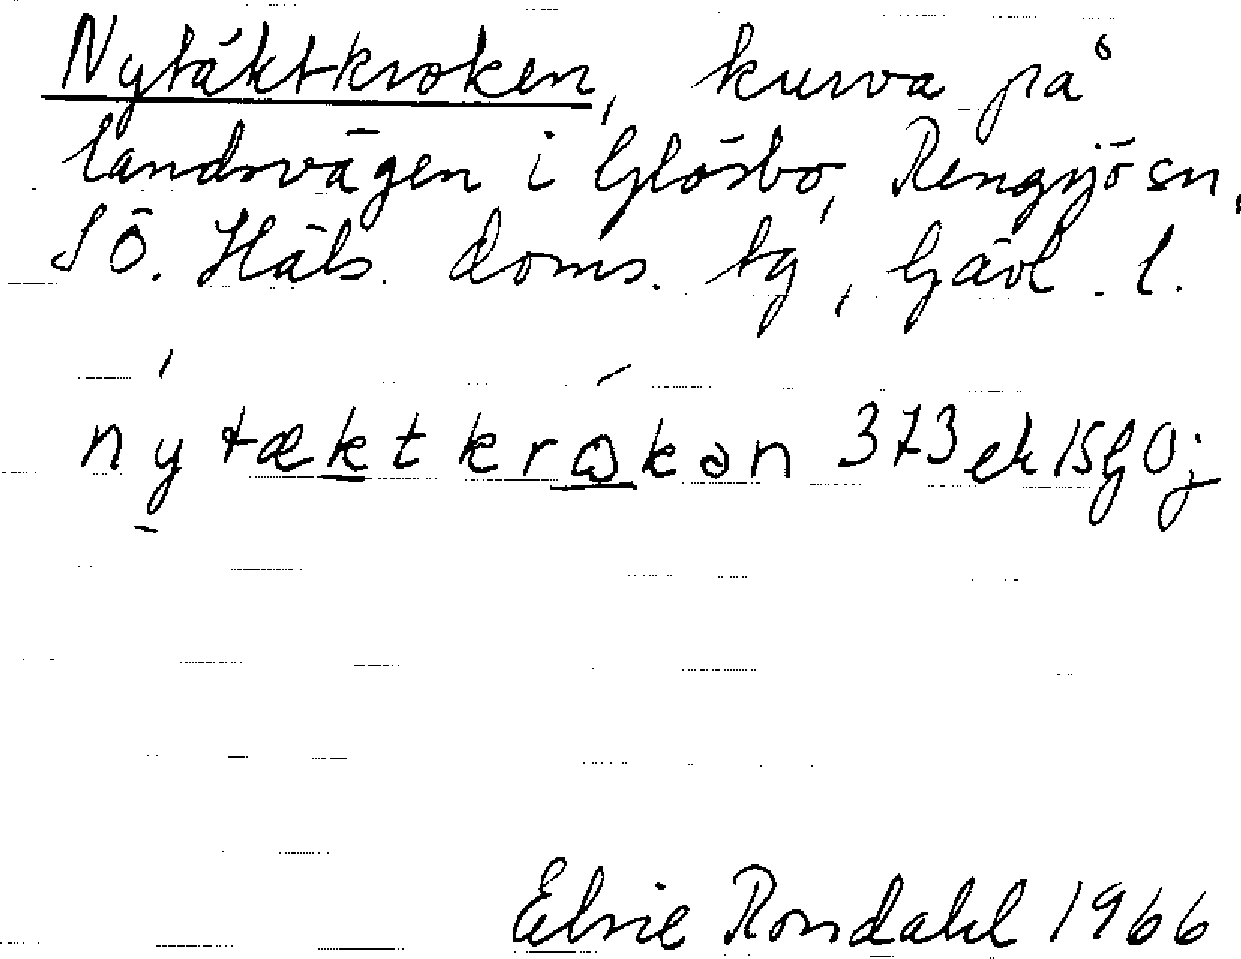 Nytäktkroken, kurva på
landsvägen i Glösbo, Rengsjö sn,
SÖ. Häls. doms. tg, Gävl. l.
nýtækt krókən 373 ek 15 G Oj
Elsie Rondahl 1966